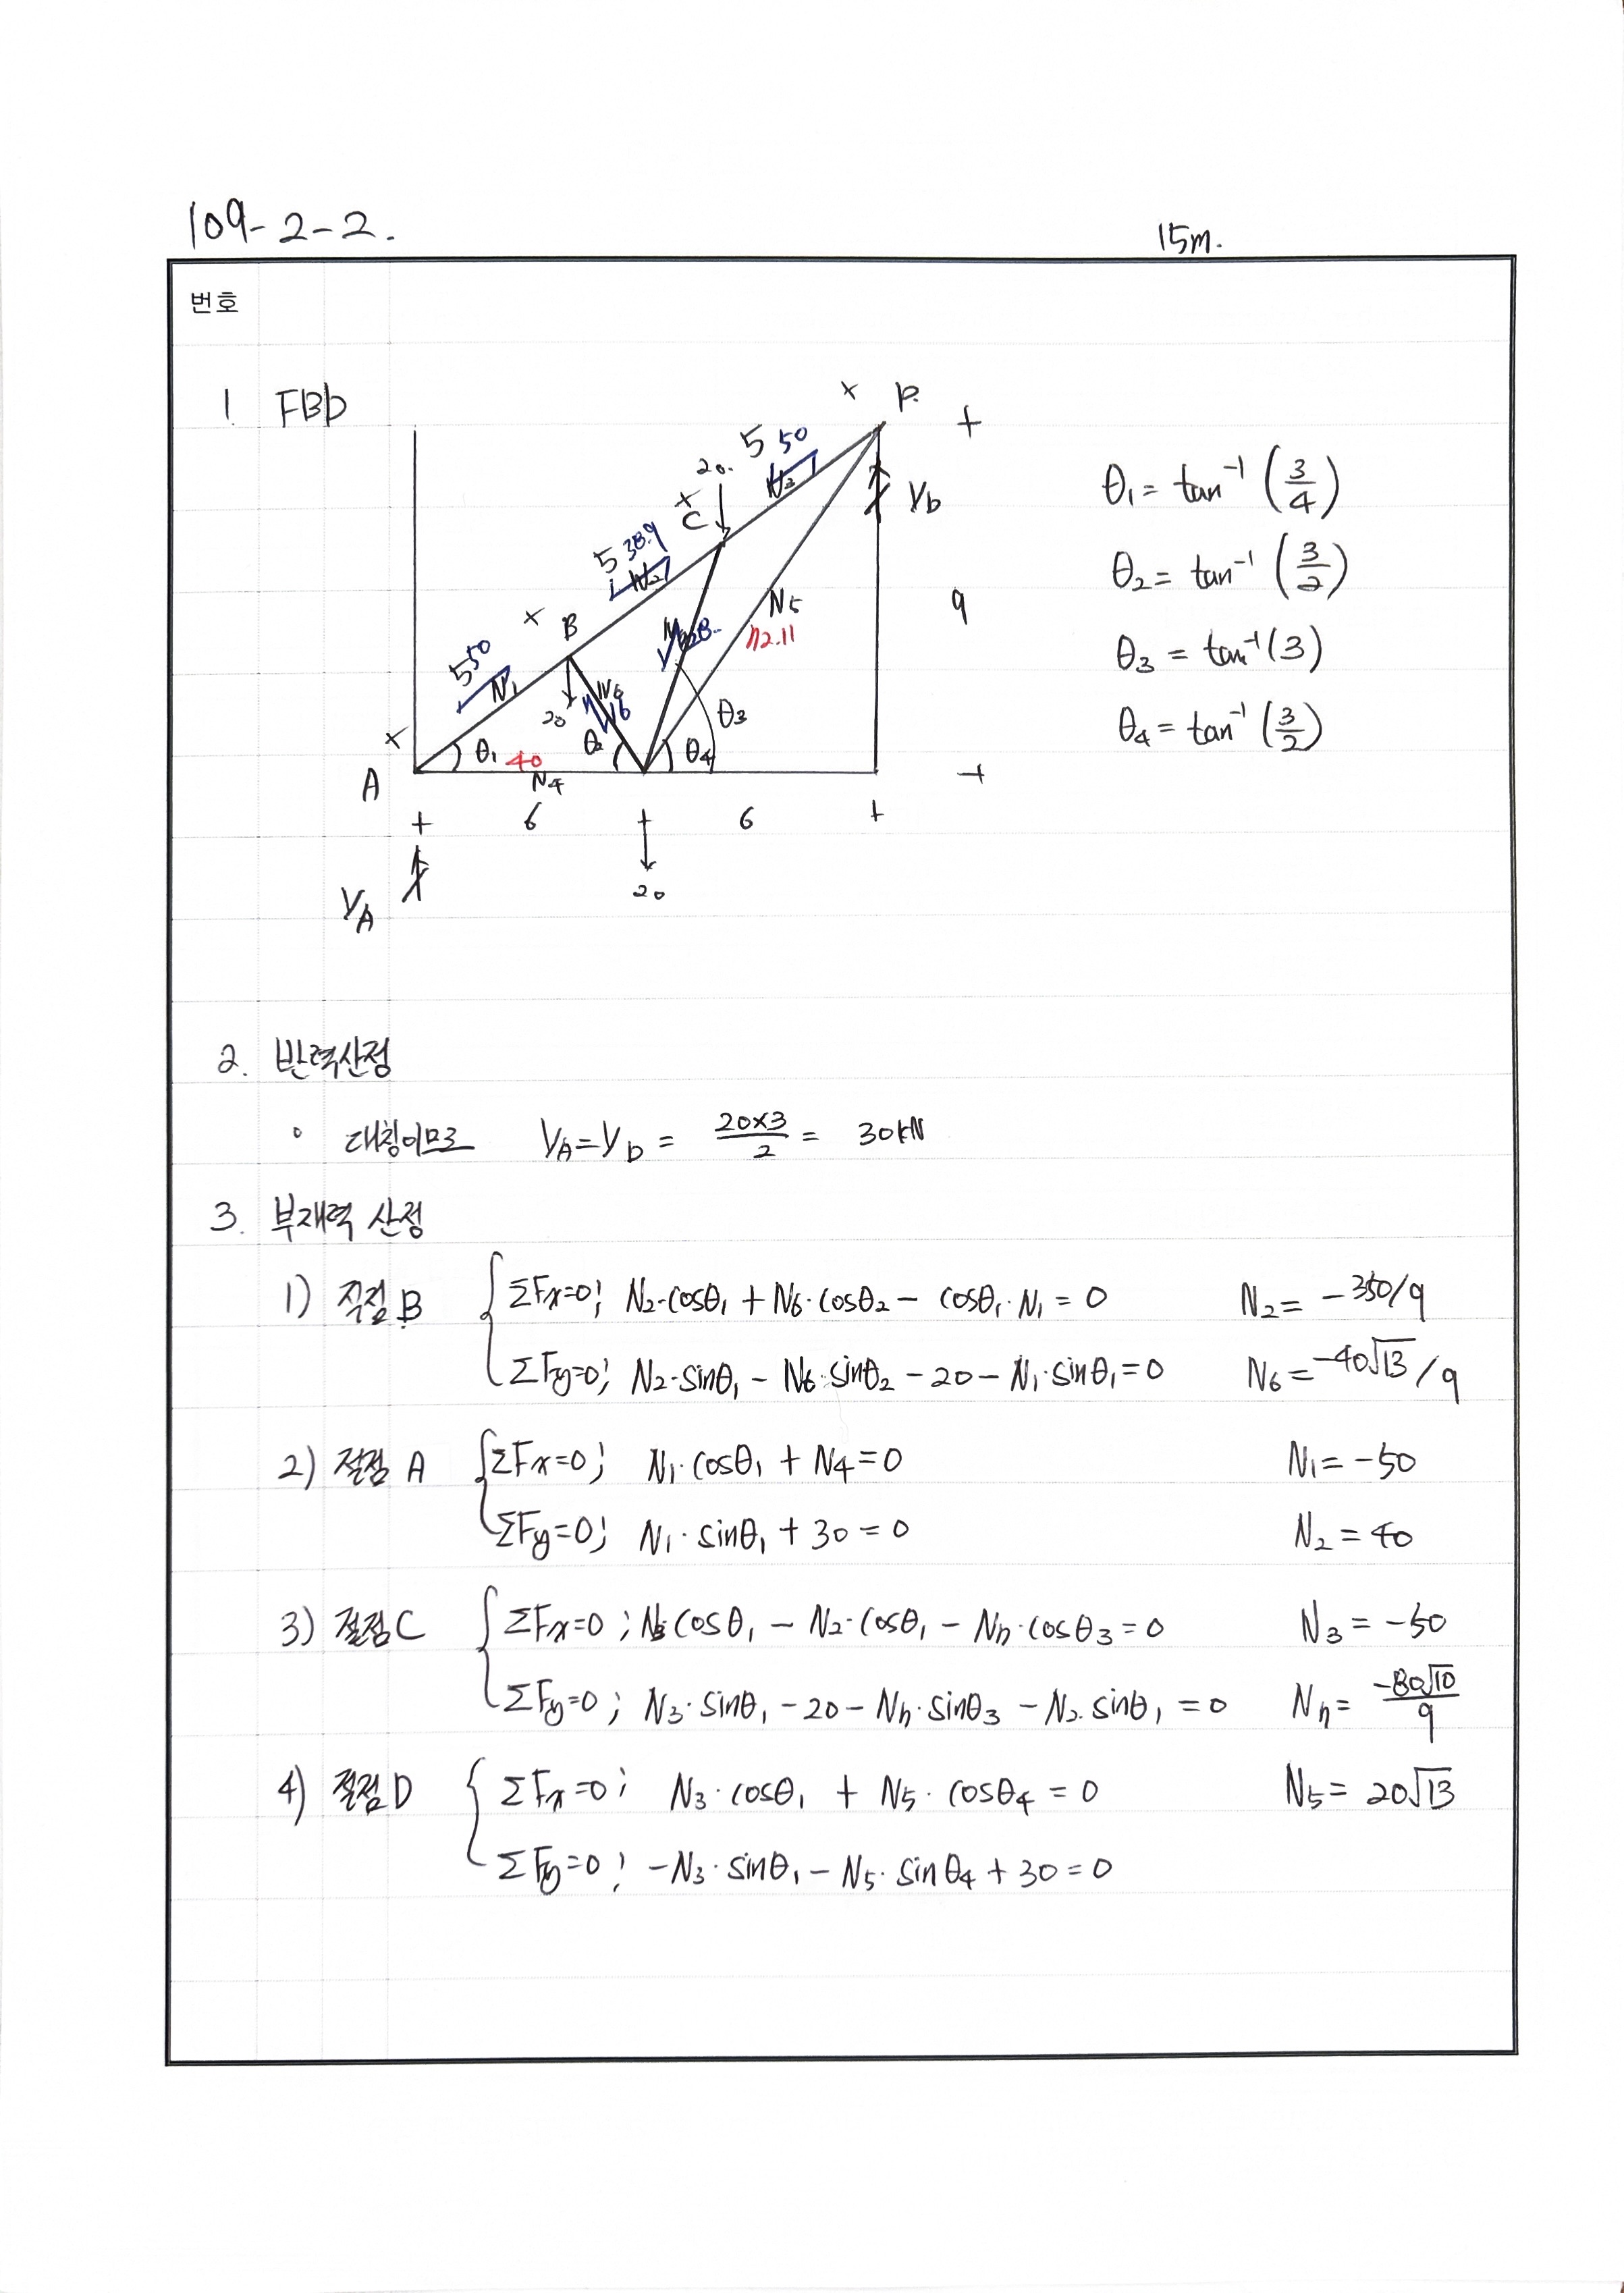 109-2-2.
15m.
번호
1 FBD
x D.
+
5 50
20. N3
x C
VD
5 38.9
N2
x B
9
N5
72.11
5 50
N1
20 N6
16
θ3
x
θ1 40 θ2 θ4
A N4
+
+ 6 + 6 +
20
VA
θ1 = tan⁻¹ (3/4)
θ2 = tan⁻¹ (3/2)
θ3 = tan⁻¹(3)
θ4 = tan⁻¹ (3/2)
2. 반력산정
∘ 대칭이므로 VA = VD = 20×3/2 = 30kN
3. 부재력 산정
1) 절점 B { ΣFx=0; N2·cosθ1 + N6·cosθ2 - cosθ1·N1 = 0 N2 = -350/9
ΣFy=0; N2·sinθ1 - N6·sinθ2 - 20 - N1·sinθ1 = 0 N6 = -40√13/9
2) 절점 A { ΣFx=0; N1·cosθ1 + N4 = 0 N1 = -50
ΣFy=0; N1·sinθ1 + 30 = 0 N2 = 40
3) 절점 C { ΣFx=0; N3 cosθ1 - N2·cosθ1 - N7·cosθ3 = 0 N3 = -50
ΣFy=0; N3·sinθ1 - 20 - N7·sinθ3 - N2·sinθ1 = 0 N7 = -80√10/9
4) 절점 D { ΣFx=0; N3·cosθ1 + N5·cosθ4 = 0 N5 = 20√13
ΣFy=0; -N3·sinθ1 - N5·sinθ4 + 30 = 0